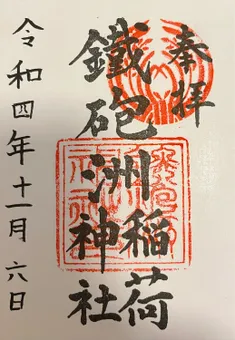 奉拝
鐵砲洲稲荷神社
令和四年十一月六日